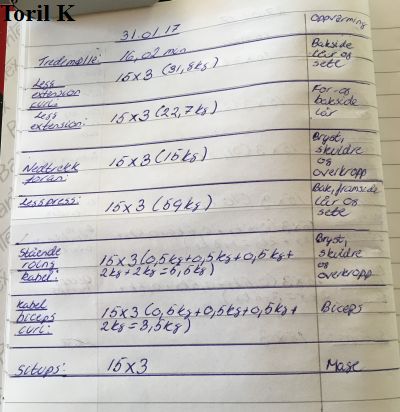 Toril K
31.01.17
Oppvarming
Tredemølle: 16,02 min
Bakside
lår og
sete
Legg
extension
curl:
15x3 (31,8kg)
Legg
extension:
15x3 (22,7kg)
For- og
bakside
lår
Nedtrekk
foran:
15x3 (15kg)
Bryst,
skuldre
og
overkropp
Leggpress:
15x3 (59kg)
Bak, framside
lår og
sete
Stående
roing
kabel:
15x3 (0,5kg+0,5kg+0,5kg+
2kg+2kg=5,5kg)
Bryst,
skuldre
og
overkropp
Kabel
biceps
curl:
15x3 (0,5kg+0,5kg+0,5kg+
2kg=3,5kg)
Biceps
Situps:
15x3
Mage